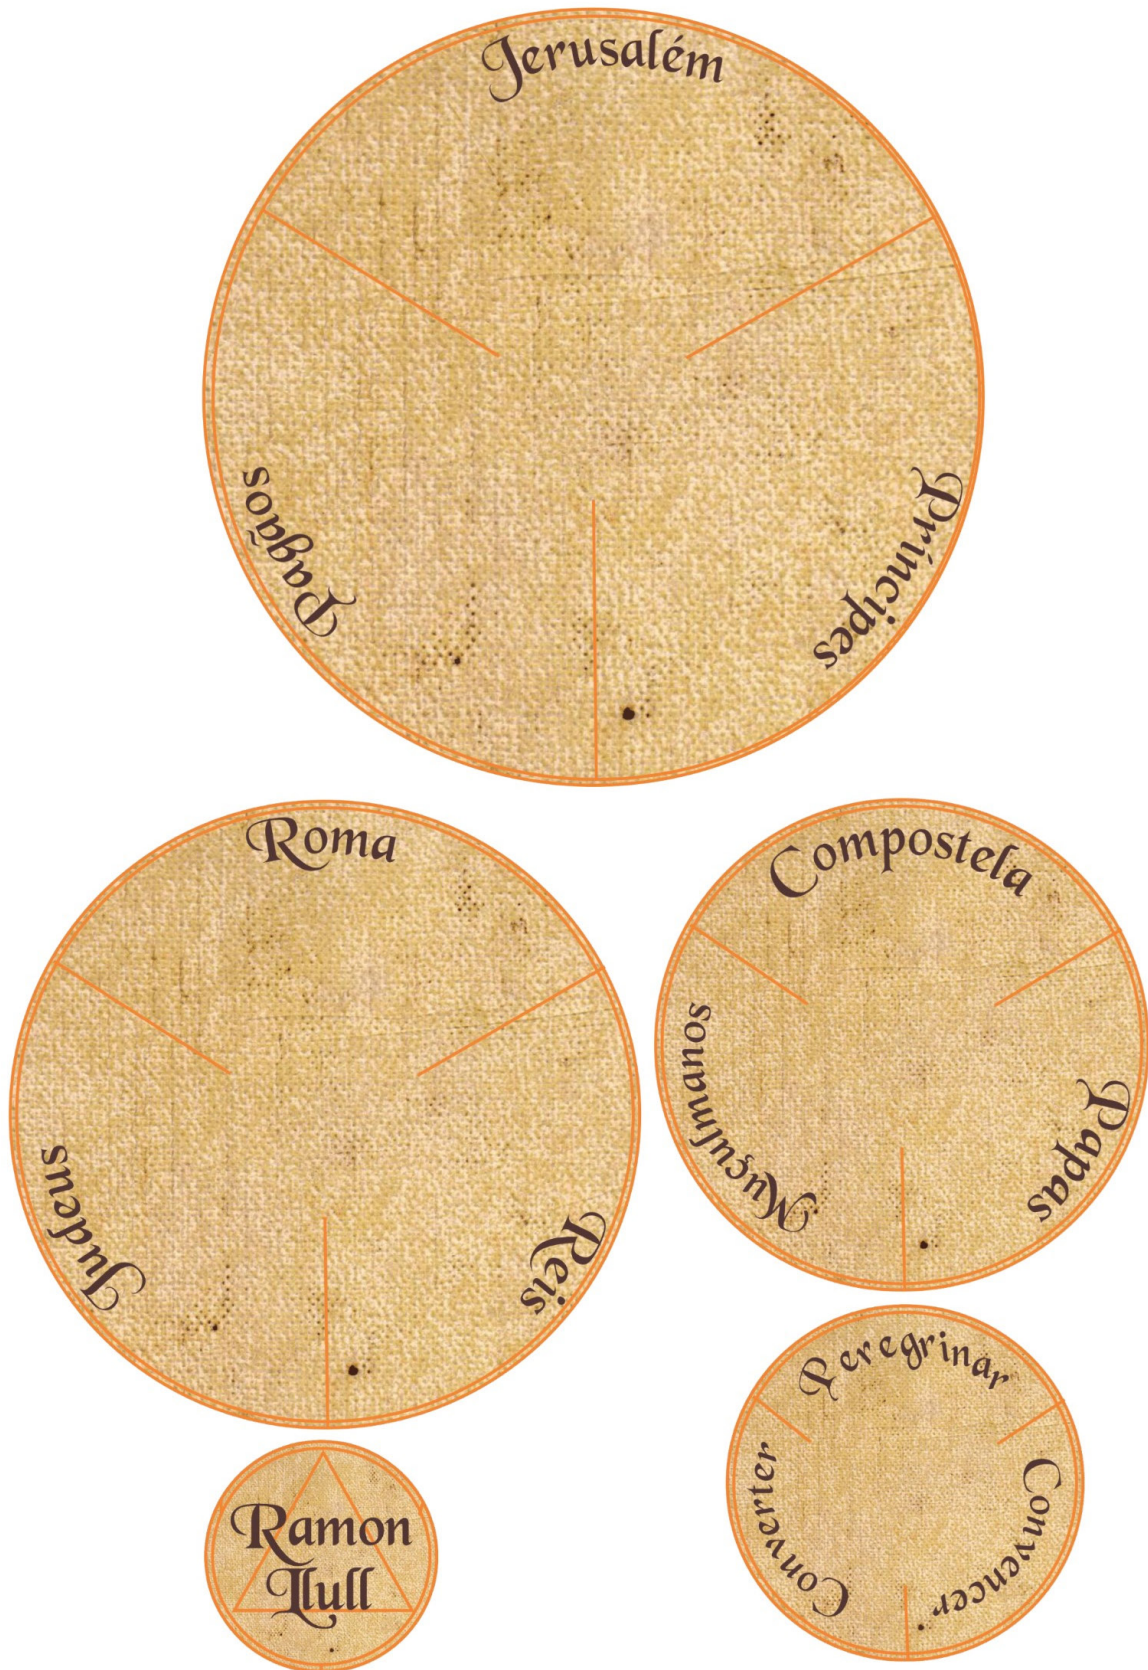 Jerusalém
Pagãos
Príncipes
Roma
Judeus
Reis
Compostela
Muçulmanos
Papas
Peregrinar
Converter
Convencer
Ramon
Llull